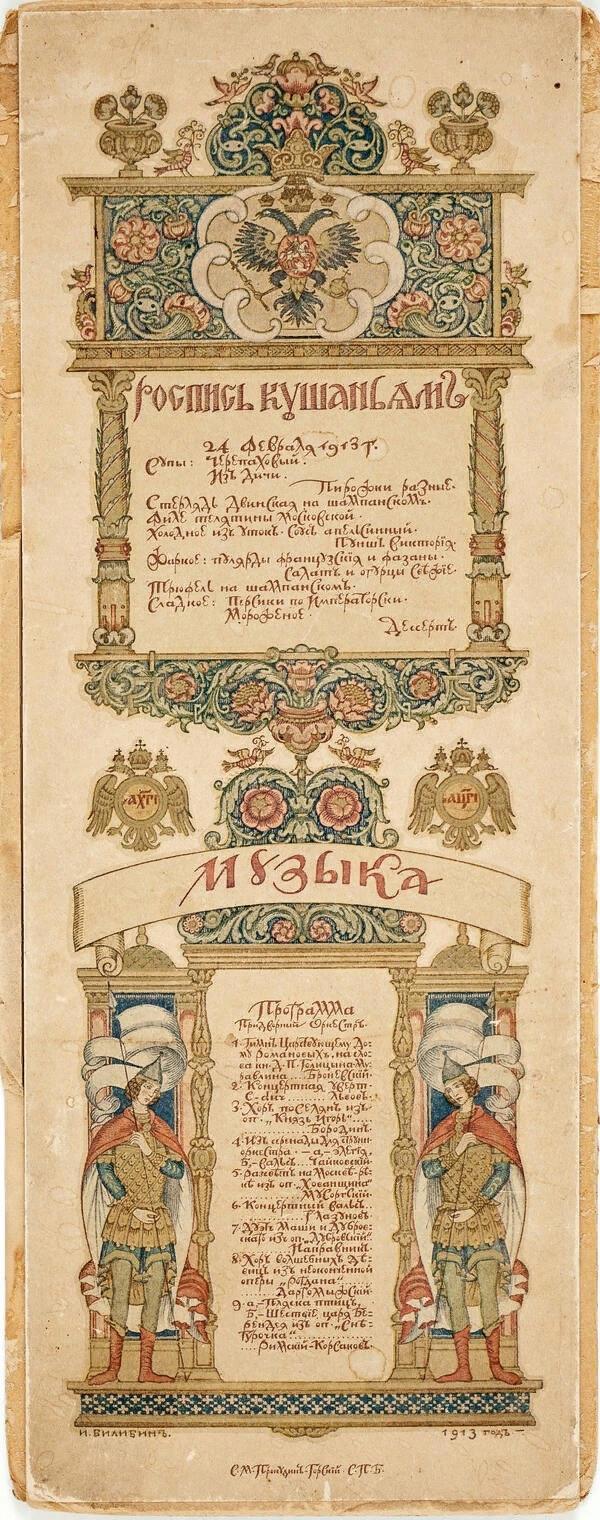 Роспись кушаньямъ
24 Февраля 1913 г.
Супы: Черепаховый.
Изъ дичи.
Пирожки разные.
Стерлядь Двинская на шампанскомъ.
Филе телятины Московской.
Холодное изъ утокъ. Соусъ апельсинный.
Пуншъ Викторія
Жаркое: пулярды французскія и фазаны.
Салатъ и огурцы
Трюфель на шампанскомъ.
Сладкое: Персики по Императорски.
Мороженое.
Дессертъ.
Музыка
Программа
Придворный Оркестръ.
1. Гимнъ Царствующему До-
му Романовыхъ, на сло-
ва кн. Д. П. Голицына-Му-
равлина.... Броневскій.
2. Концертная уверт-
....... Львовъ.
3. Хоръ поселянъ изъ
оп. „Князь Игорь“....
........ Бородинъ.
4. Изъ серенады для струн.
оркестра. - а,- элегія.
б,- вальсъ... Чайковскій.
5. Разсвѣтъ на Москвѣ-рѣ-
кѣ изъ оп. „Хованщина“
........ Мусоргскій.
6. Концертный вальсъ...
........ Глазуновъ.
7. Дуэтъ Маши и Дубров-
скаго изъ оп. „Дубровскій“
..... Направникъ.
8. Хоръ волшебныхъ дѣ-
вицъ изъ неоконченной
оперы „Рогдана“......
.... Даргомыжскій.
9. а,- Пляска птицъ,
б,- Шествіе царя Бе-
рендея изъ оп. „Снѣ-
гурочка“..........
.... Римскій-Корсаковъ.
И. Билибинъ.
1913 годъ -
С. М. Прокудинъ-Горскій. С. П. Б.